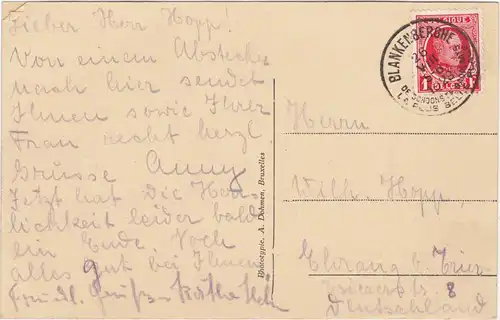 Lieber Herr Hopp!
Von einem Abstecher
nach hier sendet
Ihnen sowie Ihrer
Frau recht herzl.
Grüsse Anny
Jetzt hat die Herr-
lichkeit leider bald
ein Ende. Noch
alles gut bei Ihnen
Frdl. Gruß
Phototypie. A. Dohmen. Bruxelles
BELGIQUE
BLANKENBERGHE
1F
Herrn
Wilh. Hopp,
Ehrang b. Trier
8
Deutschland